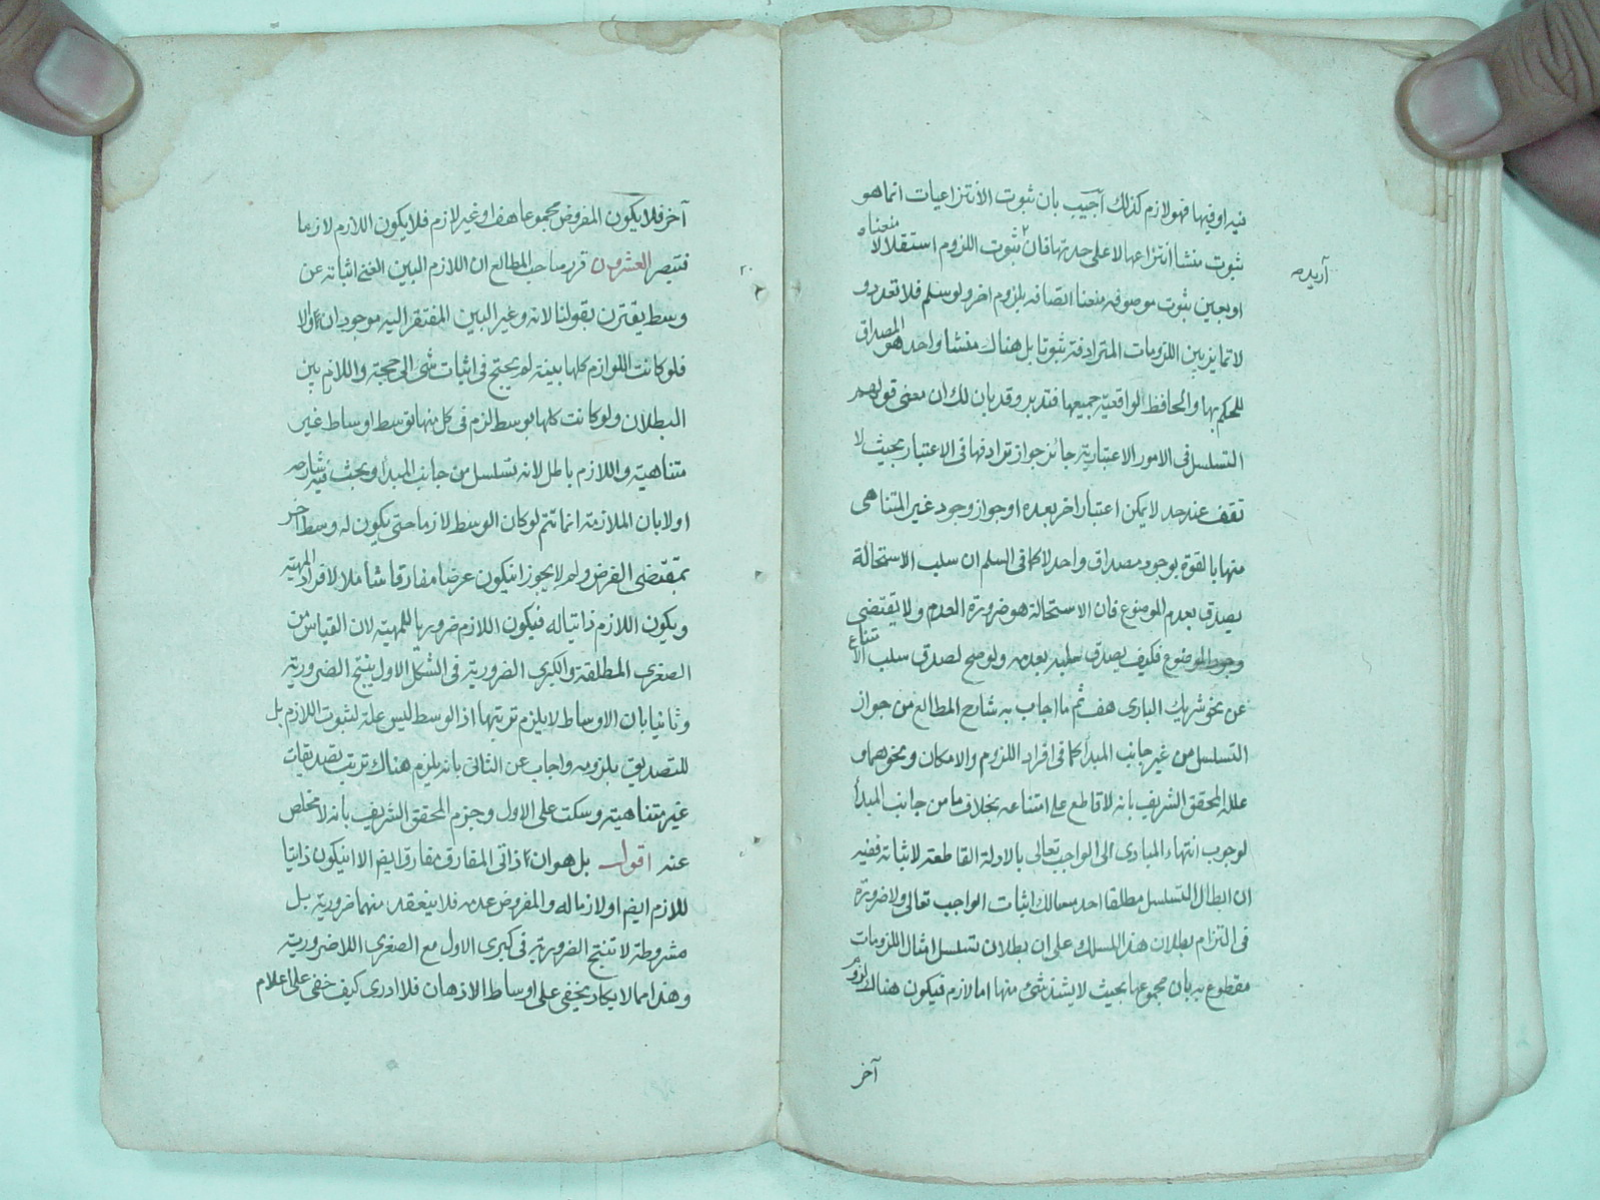 فيه او فيها فهو لازم كذلك اجيب بان ثبوت الانتزاعيات انما هو
ثبوت منشأ انتزاعها لا على حدتها فان ثبوت اللزوم استقلالا منعناه
اريد به
او بعين ثبوت موصوفه منعنا اتصافه بلزوم اخر ولو سلم فلا تعدد و
لا تمايز بين اللزومات المترادفة ثبوتا بل هناك منشأ واحد هو المصداق
للحكم بها والحافظ لواقعية جميعها فتدبر وقد بان لك ان معنى قولهم
التسلسل فى الامور الاعتبارية جائز جواز ترادفها فى الاعتبار بحيث لا
تقف عند حد لا يمكن اعتبار اخر بعده او جواز وجود غير المتناهى
منها بالقوة بوجود مصداق واحد لا كما فى السلم ان سلب الاستحالة
يصدق بعدم الموضوع فان الاستحالة هو ضرورة العدم ولا يقتضى
وجود الموضوع فكيف يصدق سلبه بعدمه ولو صح لصدق سلب الامتناع
عن نحو شريك البارى هف ثم ما اجاب به شارح المطالع من جواز
التسلسل من غير جانب المبدأ كما فى افراد اللزوم والامكان ونحوهما و
علله المحقق الشريف بانه لا قاطع على امتناعه بخلاف ما من جانب المبدأ
لوجوب انتهاء المبادى الى الواجب تعالى بالادلة القاطعة لاثباته ففيه
ان ابطال التسلسل مطلقا احد مسالك اثبات الواجب تعالى ولا ضرورة
فى التزام بطلان هذا المسلك على ان بطلان تسلسل امثال اللزومات
مقطوع به بان مجموعها بحيث لا يشذ شئ منها اما لازم فيكون هناك لزوم
آخر
آخر فلا يكون المفروض مجموعا هف او غير لازم فلا يكون اللازم لازما
فتبصر العشرون قرر صاحب المطالع ان اللازم البين الغنى اثباته عن
وسط يقترن بقولنا لانه وغير البين المفتقر اليه موجودان اولا
فلو كانت اللوازم كلها بينة لم يحتج فى اثبات شئ الى حجة واللازم بين
البطلان ولو كانت كلها بوسط لزم فى كل منها توسط اوساط غير
متناهية واللازم باطل لانه تسلسل من جانب المبدأ وبحث فيه شارحه
اولا بان الملازمة انما تتم لو كان الوسط لازما حتى يكون له وسط آخر
بمقتضى الفرض ولم لا يجوز ان يكون عرضا مفارقا شاملا لافراد المهية
ويكون اللازم ذاتيا له فيكون اللازم ضروريا للمهية لان القياس من
الصغرى المطلقة والكبرى الضرورية فى الشكل الاول ينتج الضرورية
وثانيا بان الاوساط لا يلزم ترتبها اذ الوسط ليس علة لثبوت اللازم بل
للتصديق بلزومه واجاب عن الثانى بانه يلزم هناك ترتب تصديقات
غير متناهية وسكت على الاول وجزم المحقق الشريف بانه لا مخلص
عنه اقول بل هو ان ذاتى المفارق مفارق ايضا الا ان يكون ذاتيا
للازم ايضا او لازما له والمفروض عدمه فلا ينعقد منهما ضرورية بل
مشروطة لا تنتج الضرورية فى كبرى الاول مع الصغرى اللا ضرورية
وهذا مما لا يكاد يخفى على اوساط الاذهان فلا ادرى كيف خفى على اعلام